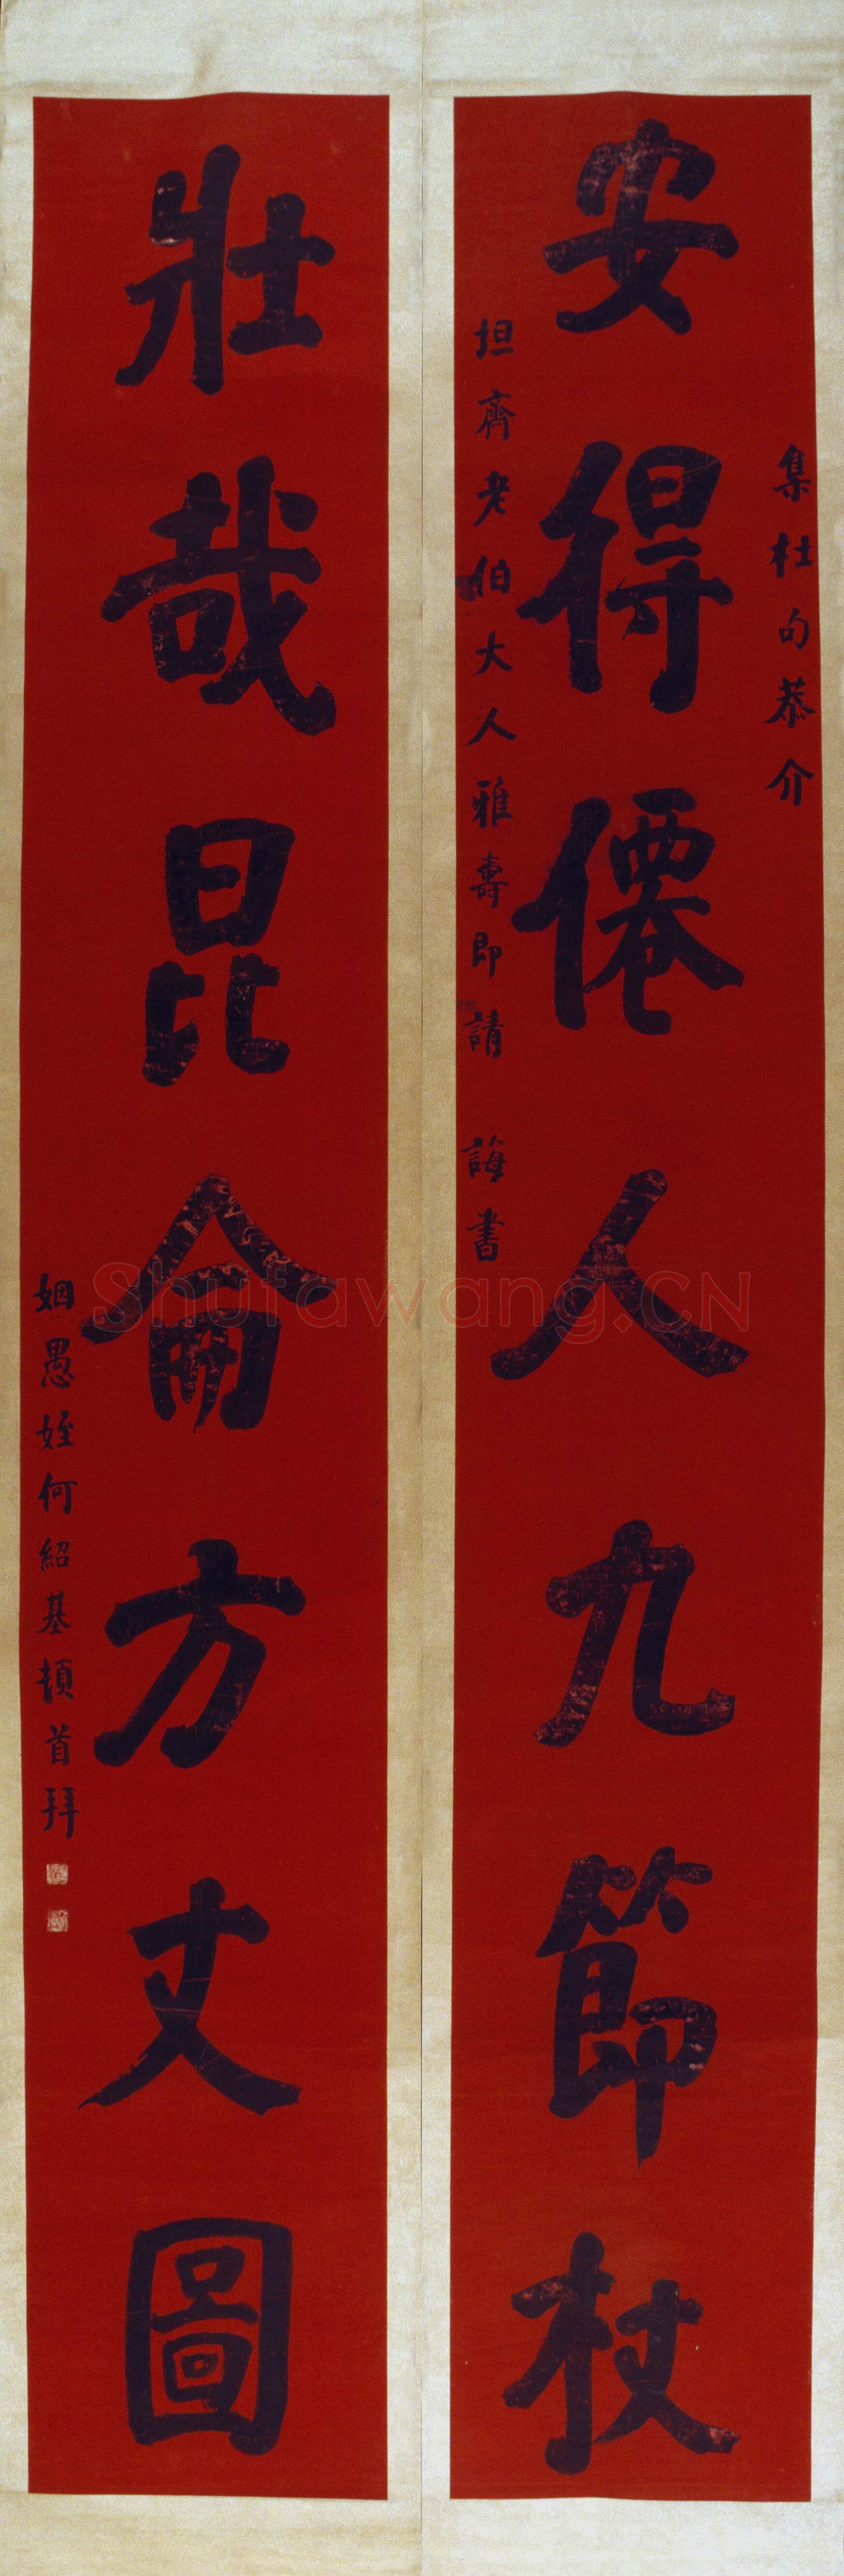 安得僊人九節杖
集杜句恭介
坦齋老伯大人雅壽即請
誨書
壯哉昆侖方丈圖
姻愚姪何紹基頓首拜
Shufawang.CN